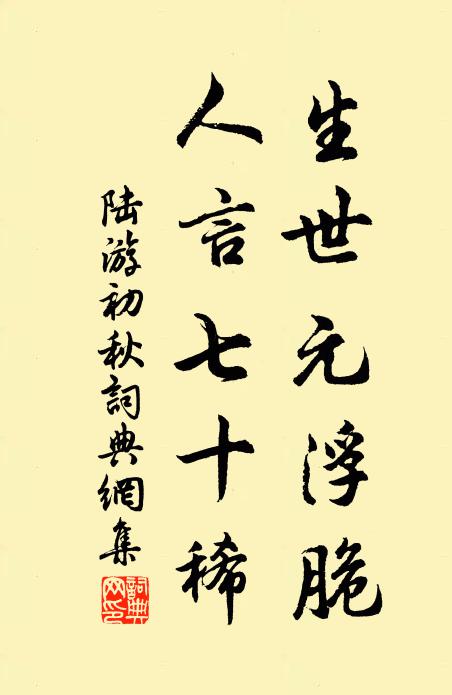 生世元浮脆
人言七十稀
陆游初秋詞典網集
詞典網印